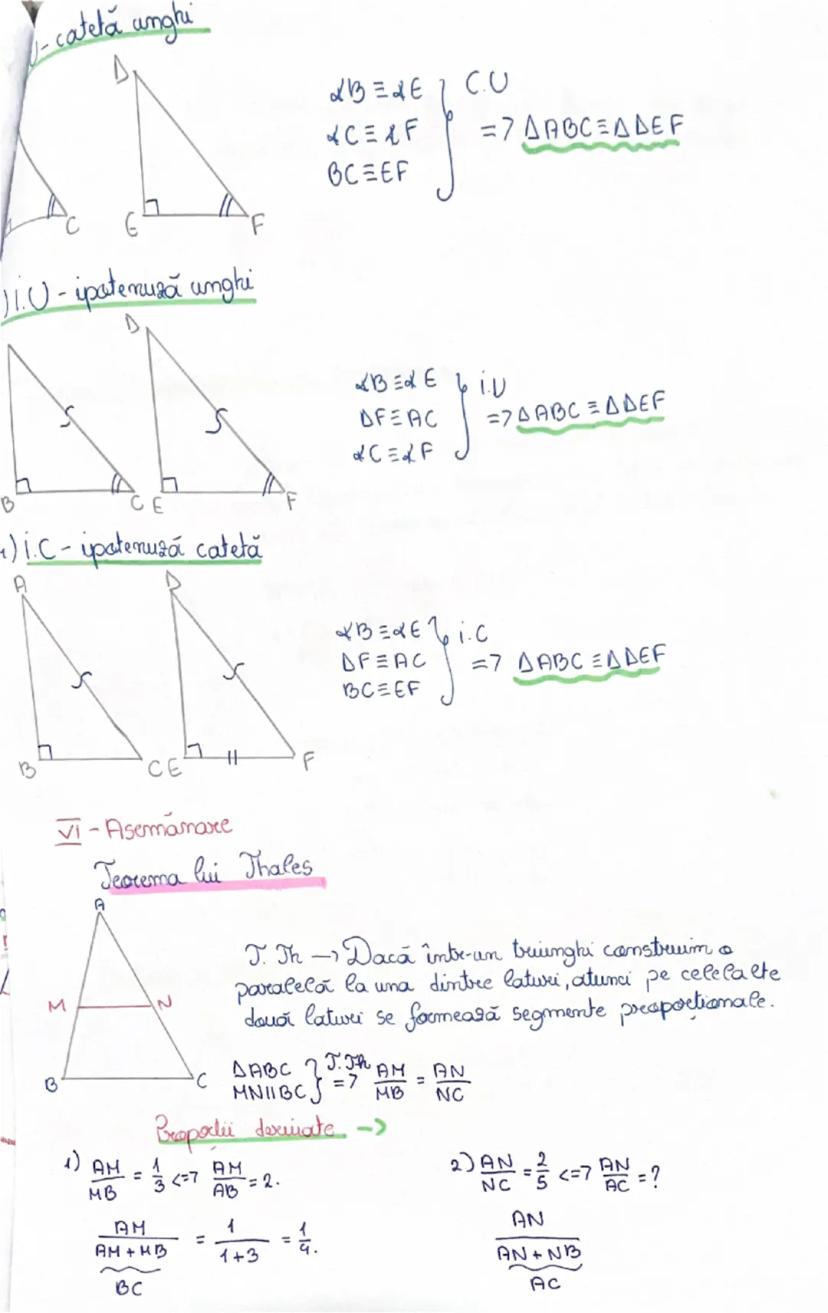 )- catetă unghi
D
∢B ≡ ∢E } C.U
∢C ≡ ∢F => ΔABC ≡ ΔDEF
BC ≡ EF
C E F
) i.U - ipotenuză unghi
D
∢B ≡ ∢E } i.U
DF ≡ AC => ΔABC ≡ ΔDEF
∢C ≡ ∢F
B C E F
) i.C - ipotenuză catetă
A D
∢B ≡ ∢E } i.C
DF ≡ AC => ΔABC ≡ ΔDEF
BC ≡ EF
B C E F
VI - Asemănare
Teorema lui Thales
A
T. Th -> Dacă într-un triunghi construim o
paralelă la una dintre laturi, atunci pe celelalte
două laturi se formează segmente proporționale.
M N
B C
ΔABC } T.Th AM/MB = AN/NC
MN||BC =>
Proporții derivate ->
1) AM/MB = 1/3 <=> AM/AB = 2.
AM/(AM+MB) = 1/(1+3) = 1/4.
BC
2) AN/NC = 2/5 <=> AN/AC = ?
AN/(AN+NB)
AC